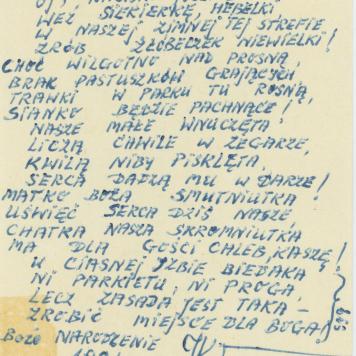 WEŹ SIEKIERKĘ HEBELKI
W NASZEJ ZIMNEJ TEJ STREFIE
ZRÓB ŻŁÓBECZEK NIEWIELKI!
CHOĆ WILGOTNO NAD PROSNĄ,
BRAK PASTUSZKÓW GRAJĄCYCH
TRAWKI W PARKU TU ROSNĄ,
SIANKO BĘDZIE PACHNĄCE!
NASZE MAŁE WNUCZĘTA
LICZĄ CHWILE W ZEGARZE,
KWILĄ NIBY PISKLĘTA,
SERCA DADZĄ MU W DARZE!
MATKO BOŻA SMUTNIUTKA!
UŚWIĘĆ SERCA DZIŚ NASZE,
CHATKA NASZA SKROMNIUTKA
MA DLA GOŚCI CHLEB, KASZĘ!
W CIASNEJ IZBIE BIEDAKA
NI PARKIETU, NI PROGA,
LECZ ZASADA JEST TAKA –
ZROBIĆ MIEJSCE DLA BOGA!
BOŻE NARODZENIE